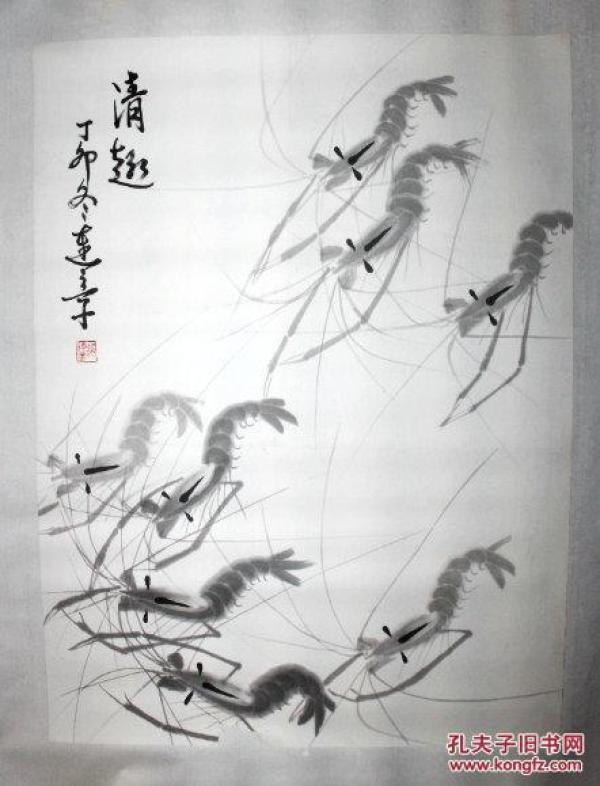 清趣
丁卯冬连章
孔夫子旧书网
www.kongfz.com